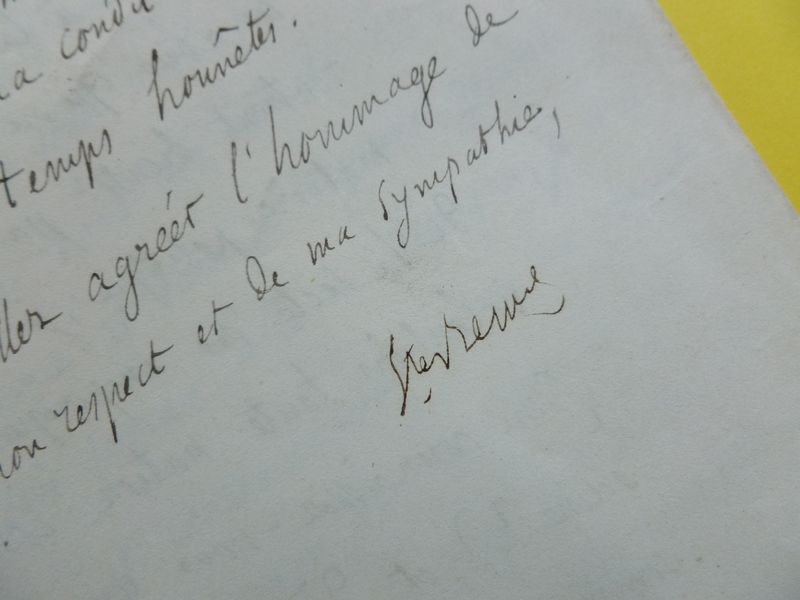 a condui
temps honnêtes.
llez agréer l'hommage de
mon respect et de ma sympathie,